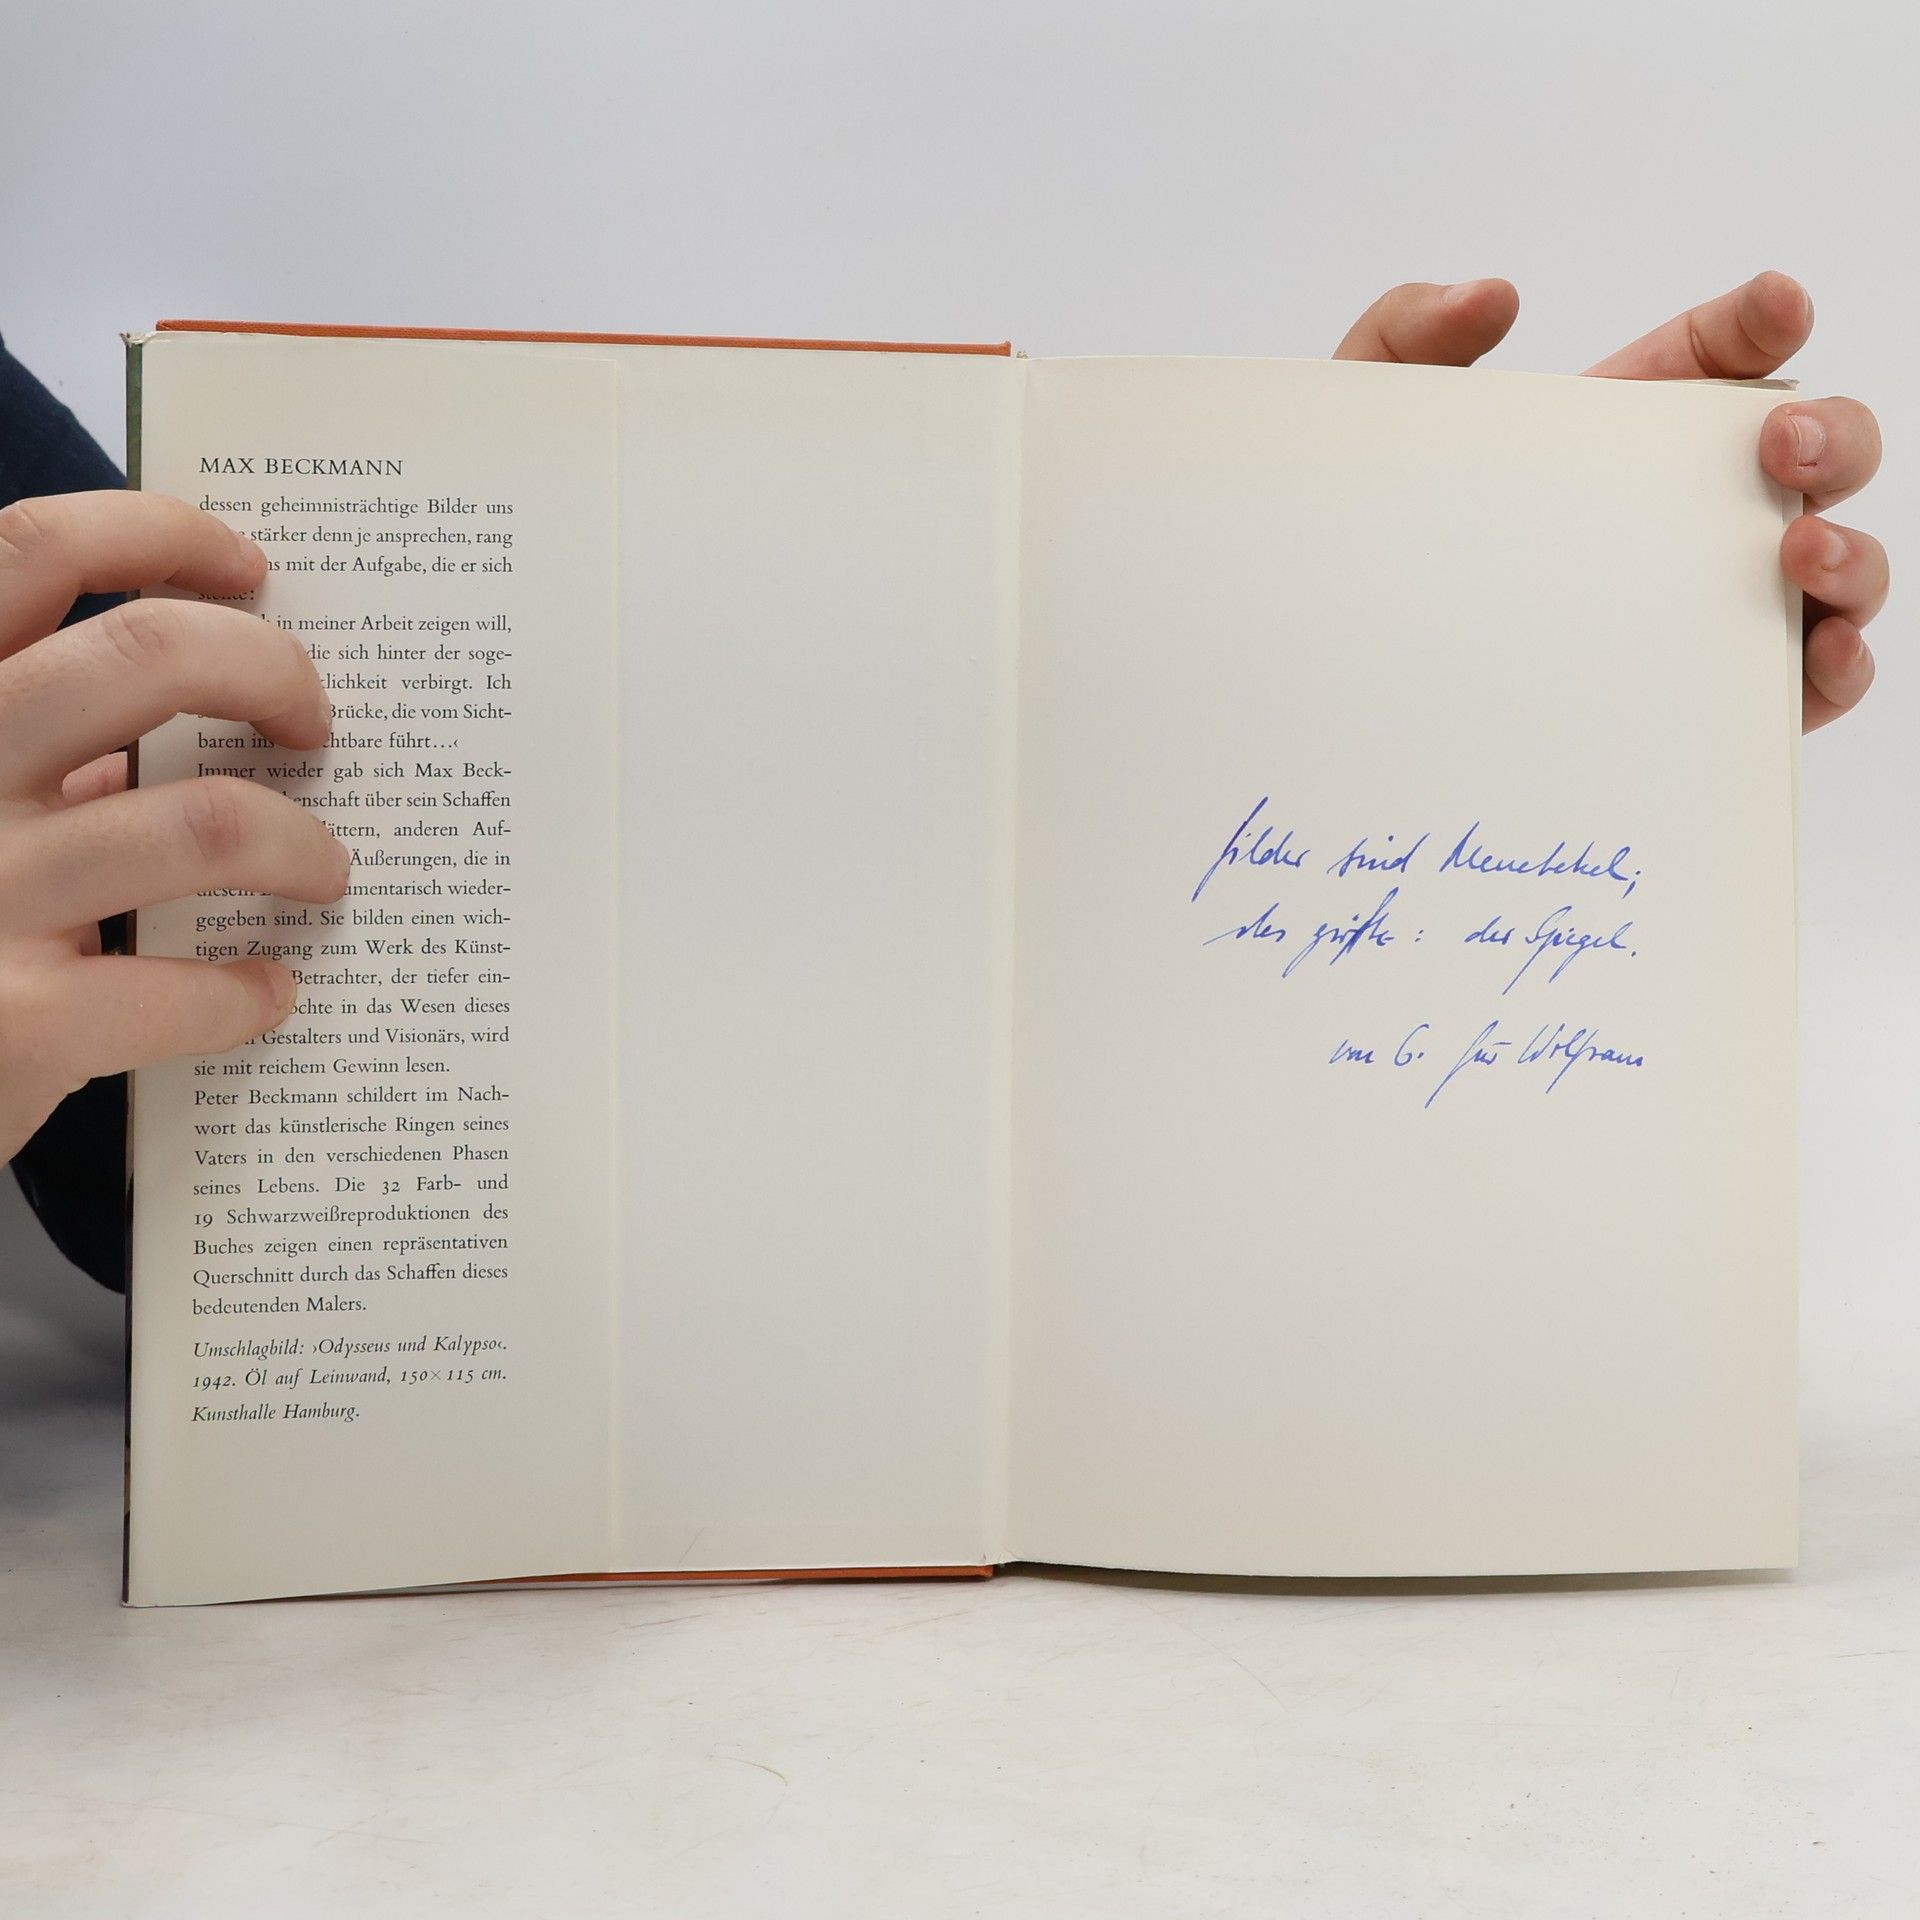 MAX BECKMANN
dessen geheimnisträchtige Bilder uns
stärker denn je ansprechen, rang
mit der Aufgabe, die er sich
stellte:
in meiner Arbeit zeigen will,
die sich hinter der soge-
verbirgt. Ich
Brücke, die vom Sicht-
baren ins führt...‹
Immer wieder gab sich Max Beck-
über sein Schaffen
anderen Auf-
Äußerungen, die in
diesem wieder-
gegeben sind. Sie bilden einen wich-
tigen Zugang zum Werk des Künst-
Betrachter, der tiefer ein-
in das Wesen dieses
Gestalters und Visionärs, wird
sie mit reichem Gewinn lesen.
Peter Beckmann schildert im Nach-
wort das künstlerische Ringen seines
Vaters in den verschiedenen Phasen
seines Lebens. Die 32 Farb- und
19 Schwarzweißreproduktionen des
Buches zeigen einen repräsentativen
Querschnitt durch das Schaffen dieses
bedeutenden Malers.
Umschlagbild: ›Odysseus und Kalypso‹.
1942. Öl auf Leinwand, 150×115 cm.
Kunsthalle Hamburg.
Bilder sind Menetekel;
das größte: der Spiegel.
von G. für Wolfram